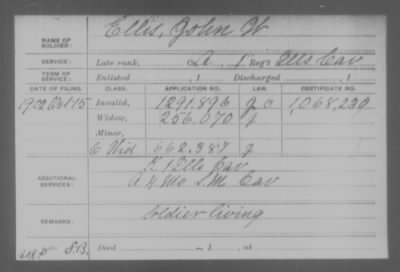 NAME OF SOLDIER: Ellis, John W
SERVICE: Late rank, A, 1 Reg't Ills Cav
TERM OF SERVICE: Enlisted , 1 Discharged , 1
DATE OF FILING. CLASS. APPLICATION NO. LAW. CERTIFICATE NO.
1902 Oct 15 Invalid, 1291.896 g o 1,068,230
Widow, 256.070 g
Minor,
C Wid 662.387 g
ADDITIONAL SERVICES: F 1 Ills Cav
A 4 Mo S.M. Cav
REMARKS: Soldier living
S.B. Died , 1 , at